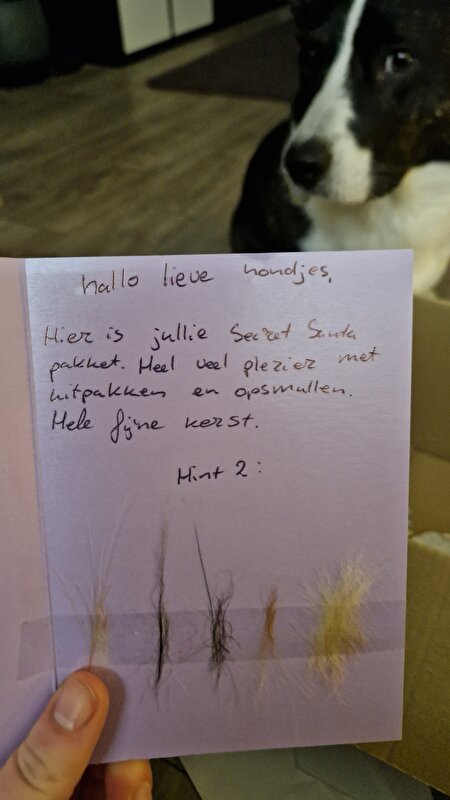 hallo lieve hondjes,
Hier is jullie Secret Santa
pakket. Heel veel plezier met
uitpakken en opsmullen.
Hele fijne kerst.
Hint 2: